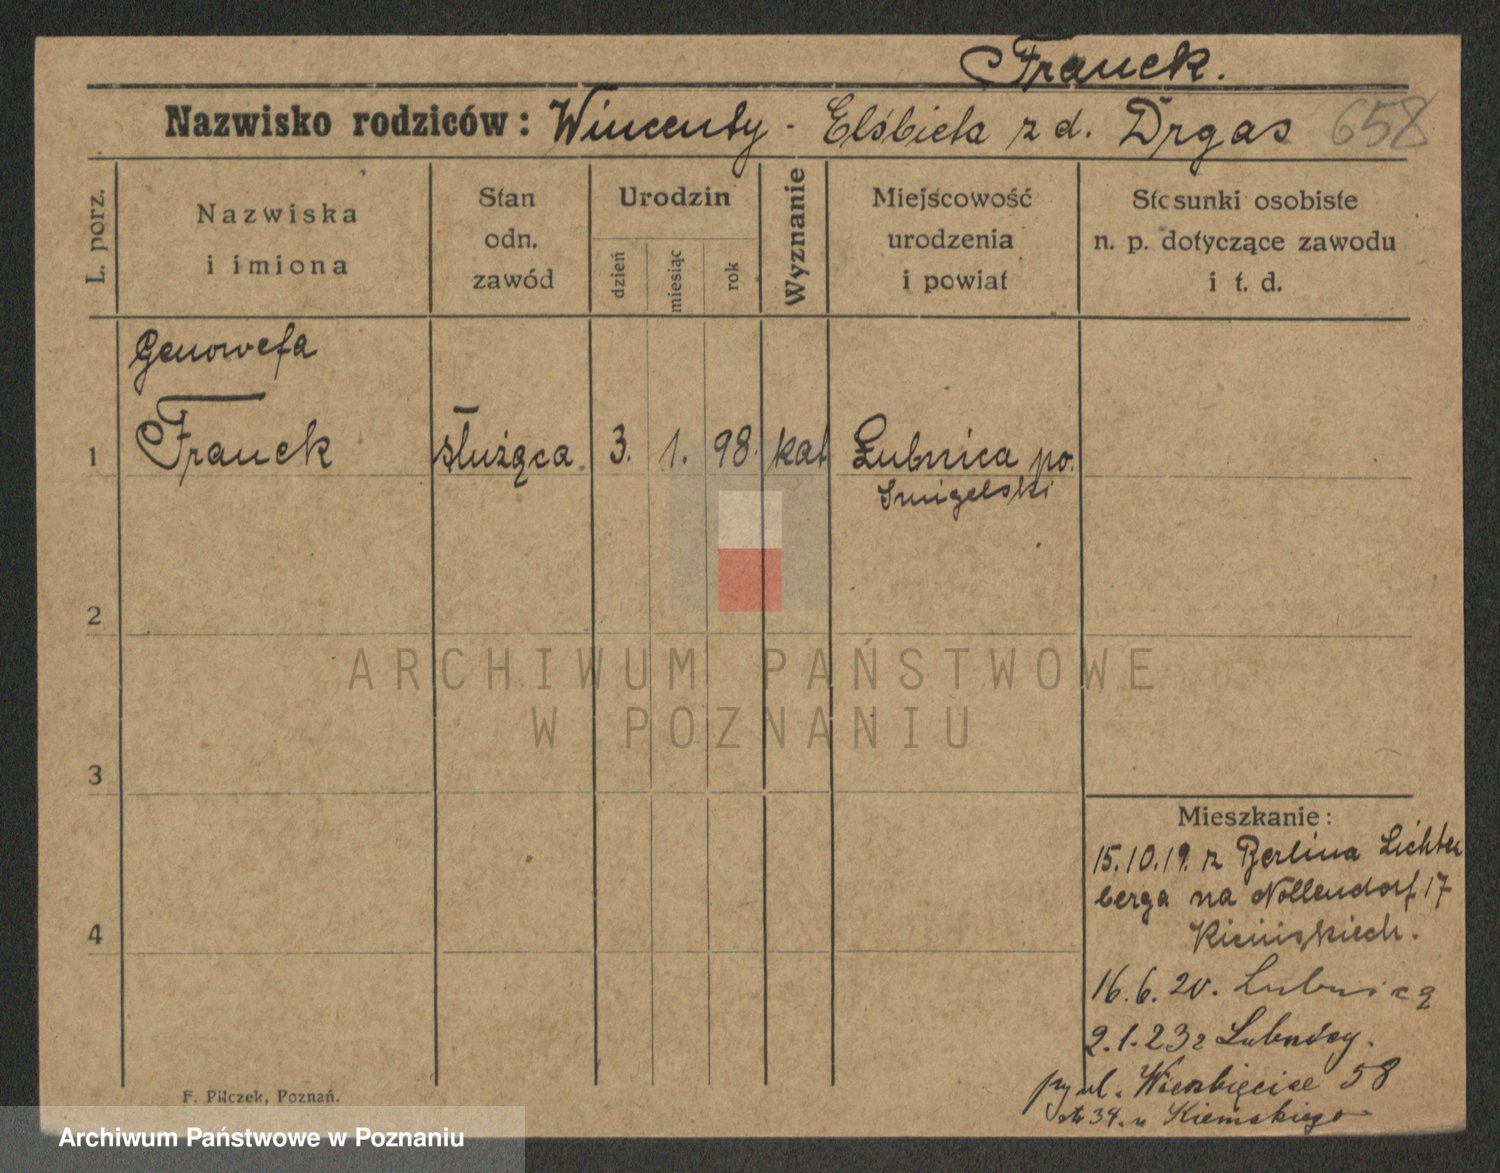 Franck.
Nazwisko rodziców: Wincenty - Elżbieta z d. Drgas 658
L. porz.
Nazwiska
i imiona
Stan
odn.
zawód
Urodzin
dzień
miesiąc
rok
Wyznanie
Miejscowość
urodzenia
i powiat
Stosunki osobiste
n. p. dotyczące zawodu
i t. d.
Genowefa
1 Franck służąca. 3. 1. 98. kat Łubnica po.
Smigelski
2
ARCHIWUM PAŃSTWOWE
W POZNANIU
3
Mieszkanie:
15.10.19. z Berlina Lichten
berga na Nollendorf 17
4
16.6.20. Łubnicą
2.1.23 z Łubnicy.
przy ul. Wierzbięcice 58
34. u Kiemskiego
F. Pilczek, Poznań.
Archiwum Państwowe w Poznaniu